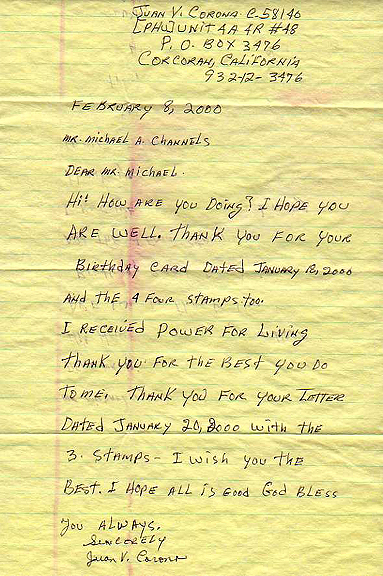 JUAN V. CORONA C-58140
[PHU] UNIT 4A 4R #48
P. O. BOX 3476
CORCORAN, CALIFORNIA
93212-3476
FEBRUARY 8, 2000
MR. MICHAEL A. CHANNELS
DEAR MR. MICHAEL.
Hi! HOW ARE YOU DOING? I HOPE YOU
ARE WELL. THANK YOU FOR YOUR
Birthday CARD DATED JANUARY 2000
AND the 4 FOUR STAMPS too.
I RECEIVED POWER FOR LIVING
THANK YOU FOR the BEST YOU DO
TO ME. THANK YOU FOR YOUR LETTER
DATED JANUARY 20, 2000 WITH the
3. STAMPS - I WISH YOU THE
BEST. I HOPE ALL is GOOD GOD BLESS
YOU ALWAYS.
SINCERELY
Juan V. Corona